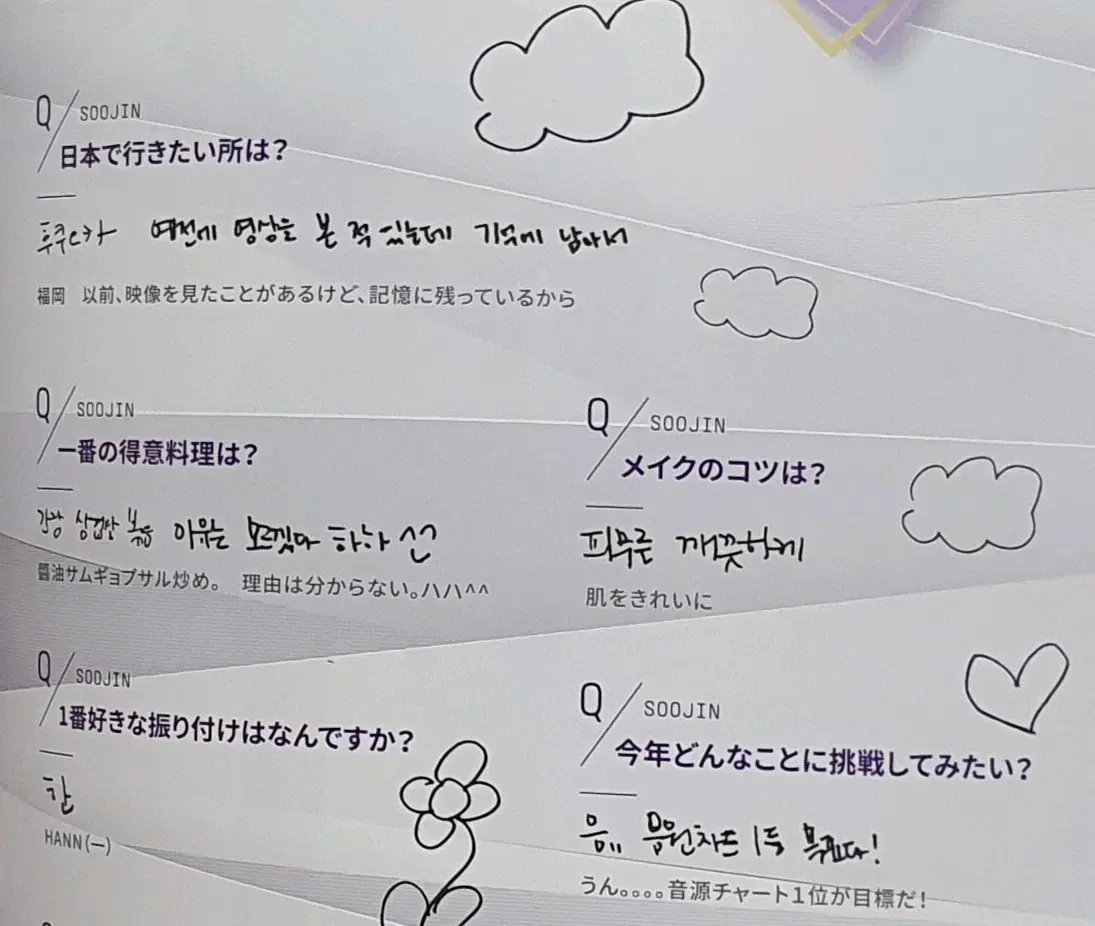 Q/SOOJIN
日本で行きたい所は?
후쿠오카 예전에 영상을 본 적 있는데 기억에 남아서
福岡 以前、映像を見たことがあるけど、記憶に残っているから
Q/SOOJIN
一番の得意料理は?
간장 삼겹살 볶음 이유는 모르겠다 하하 ^^
醤油サムギョプサル炒め。 理由は分からない。ハハ^^
Q/SOOJIN
メイクのコツは?
피부를 깨끗하게
肌をきれいに
Q/SOOJIN
1番好きな振り付けはなんですか?
한
HANN(一)
Q/SOOJIN
今年どんなことに挑戦してみたい?
음.. 음원차트 1등 목표다!
うん。。。。音源チャート1位が目標だ!